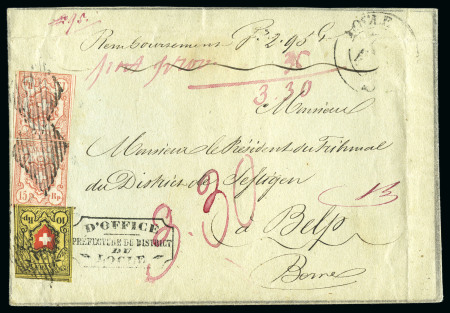 #95.
LOCLE
Remboursement Fr 2.95 Ct
3.30
Monsieur
Monsieur le Président du Tribunal
du District de Seftigen
3.30
13
à Belp
Berne
15 Rp
10 Rp
D'OFFICE
PRÉFECTURE DE DISTRICT
DU
LOCLE